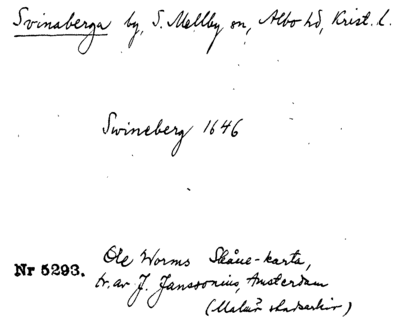 Svinaberga by, S. Mellby sn, Albo hd, Krist. l.
Swineberg 1646
Nr 5293. Ole Worms Skåne-karta,
tr. av J. Janssonius, Amsterdam